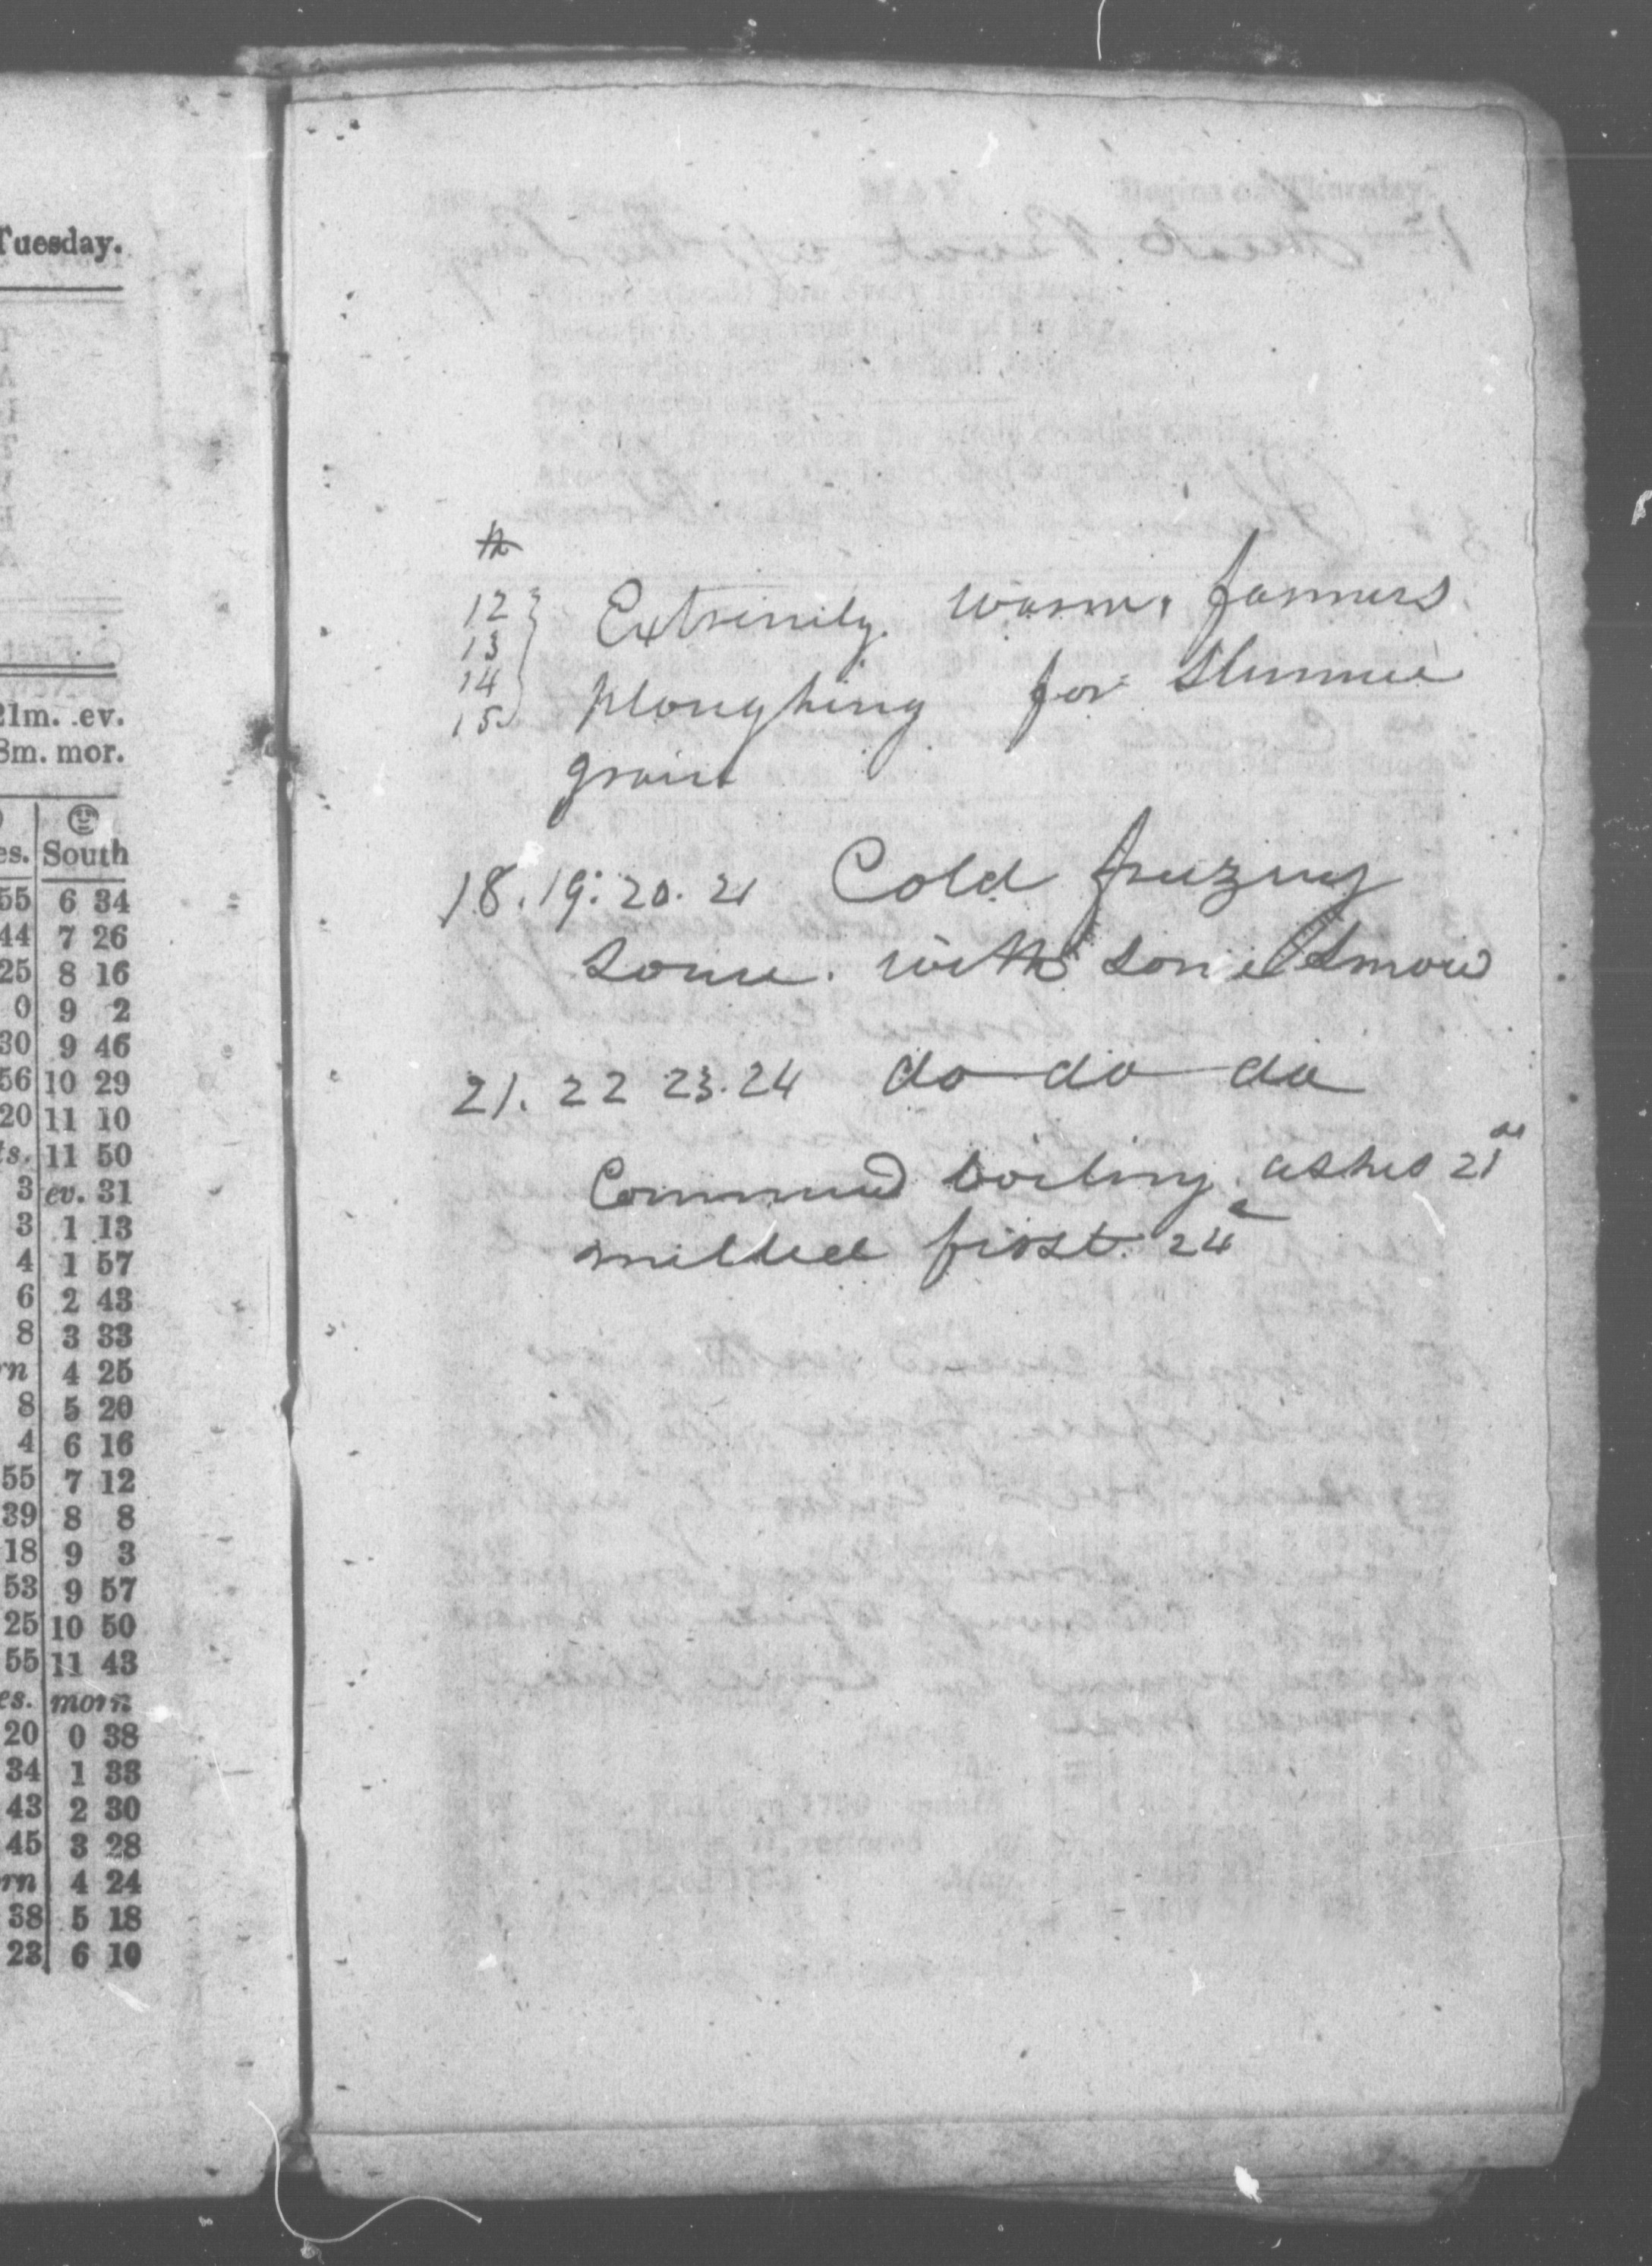 Tuesday.
21m. ev.
8m. mor.
es. South
55 6 34
44 7 26
25 8 16
0 9 2
30 9 46
56 10 29
20 11 10
ts. 11 50
3 ev. 31
3 1 13
4 1 57
6 2 43
8 3 33
rn 4 25
8 5 20
4 6 16
55 7 12
39 8 8
18 9 3
53 9 57
25 10 50
55 11 43
es. morn
20 0 38
34 1 33
43 2 30
45 3 28
rn 4 24
38 5 18
23 6 10
th
12 Extrimily warm, farmers
13
14 ploughing for
15
grain
18. 19: 20. 21 Cold frezing
some. with some Snow
21. 22 23. 24 do do do
Commened boiling ashes 21
melted first. 24